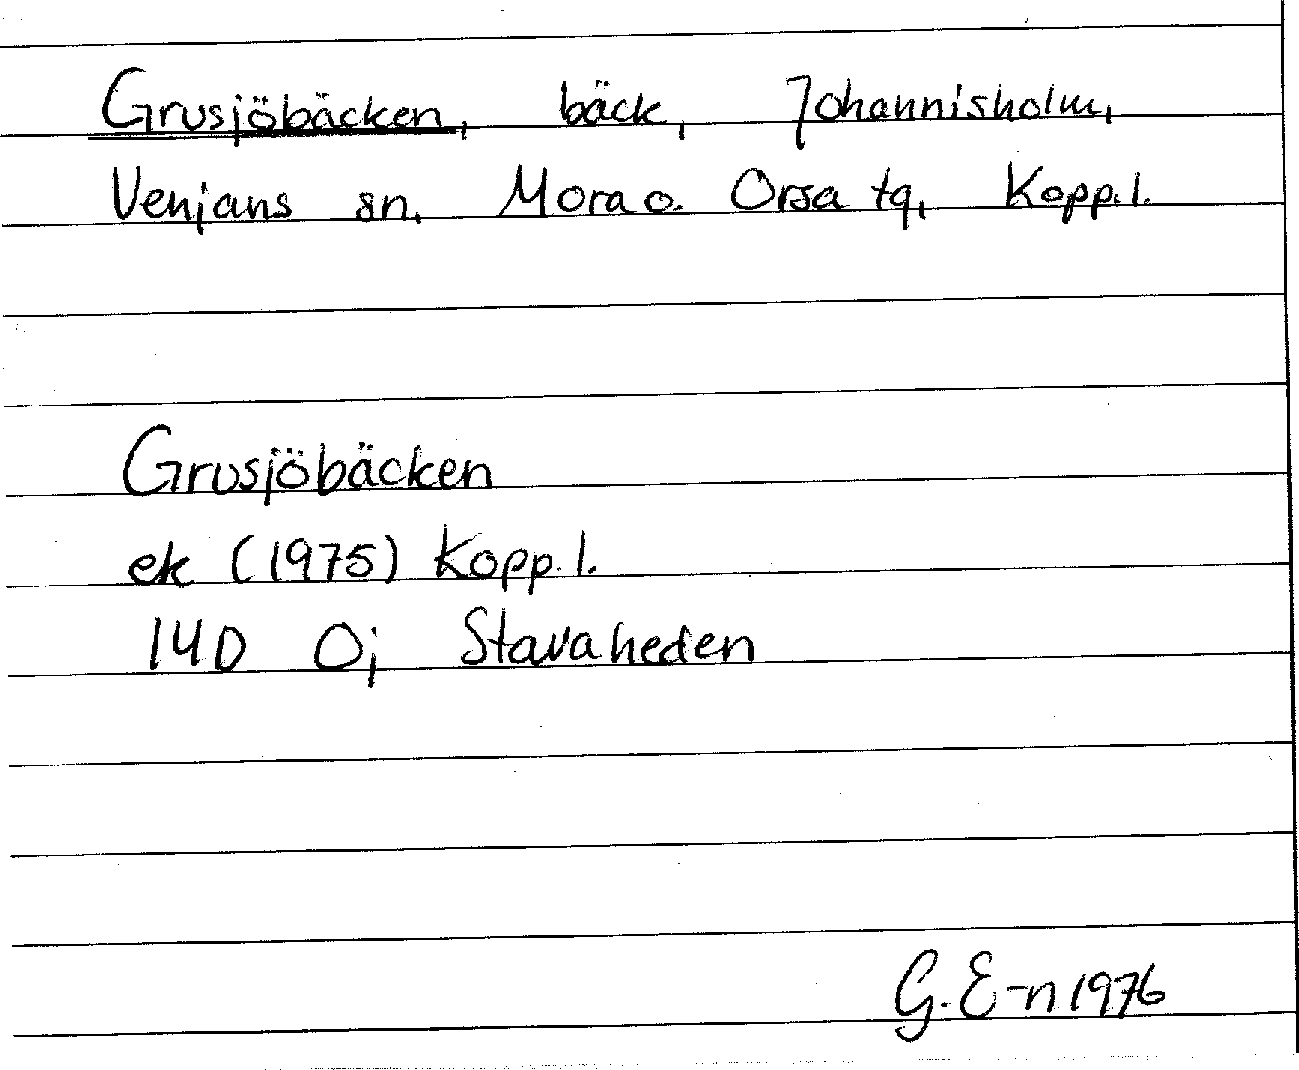 Grusjöbäcken, bäck, Johannisholm,
Venjans sn. Mora o. Orsa tg, Kopp.l.
Grusjöbäcken
ek (1975) Kopp.l.
14D 0j Stavaheden
G. E-n 1976